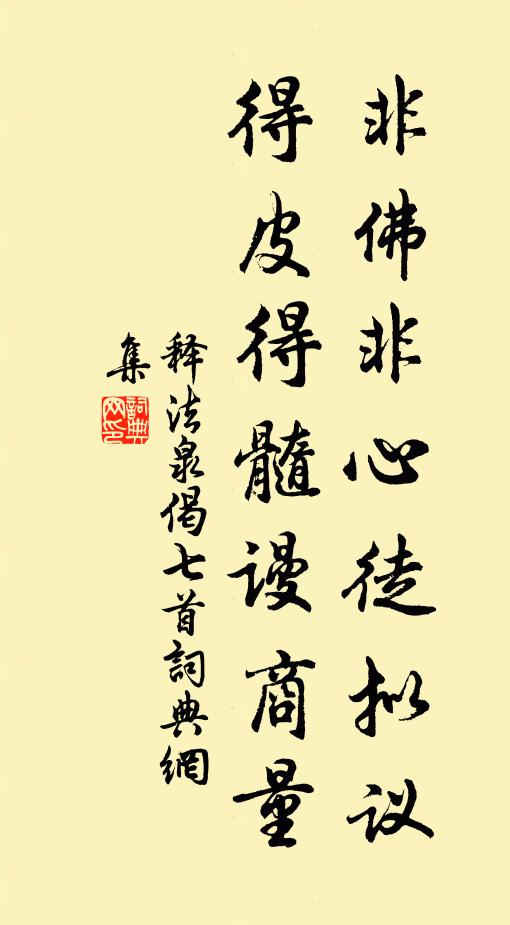 非佛非心徒拟议
得皮得髓谩商量
释法泉偈七首詞典網
集
詞典
网印